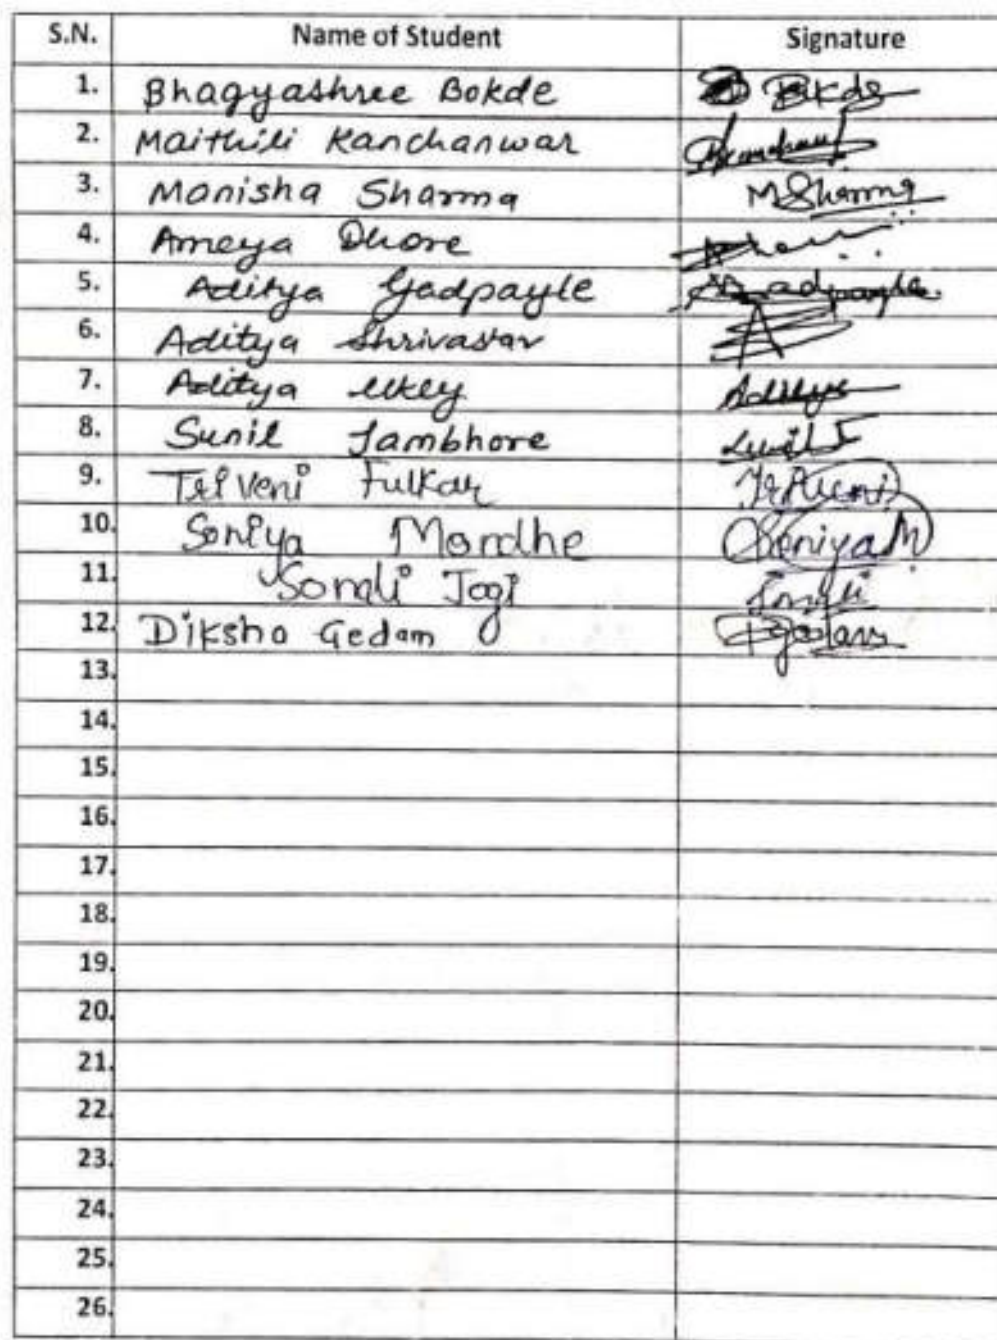 S.N. Name of Student Signature
1. Bhagyashree Bokde Bokde
2. Maithili Kanchanwar
3. Manisha Sharma MSharma
4. Ameya Dhore
5. Aditya Gadpayle Gadpayle
6. Aditya Shrivastav A
7. Aditya Ukey Aditya
8. Sunil Jambhore Sunil J
9. Triveni Fulkar Triveni
10. Soniya Mordhe Soniya M
11. Sonali Jogi Sonali
12. Diksha Gedam
13.
14.
15.
16.
17.
18.
19.
20.
21.
22.
23.
24.
25.
26.